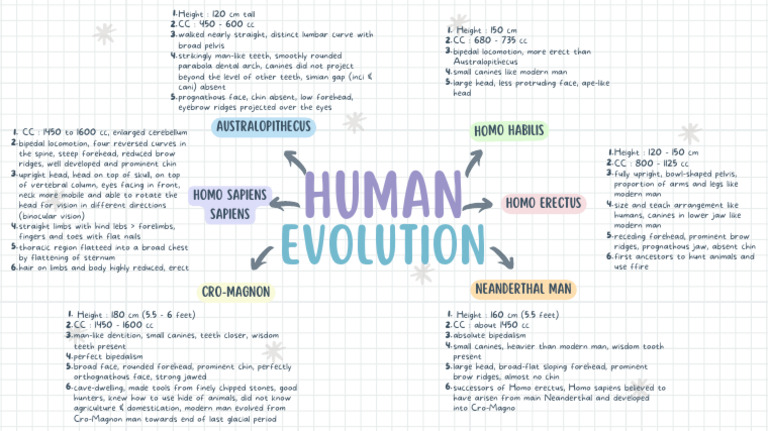 1. Height : 120 cm tall
2. CC : 450 - 600 cc
3. walked nearly straight, distinct lumbar curve with
broad pelvis
4. strikingly man-like teeth, smoothly rounded
parabola dental arch, canines did not project
beyond the level of other teeth, simian gap (inci &
cani) absent
5. prognathous face, chin absent, low forehead,
eyebrow ridges projected over the eyes
AUSTRALOPITHECUS
1. Height : 150 cm
2. CC : 680 - 735 cc
3. bipedal locomotion, more erect than
Australopithecus
4. small canines like modern man
5. large head, less protruding face, ape-like
head
HOMO HABILIS
1. CC : 1450 to 1600 cc, enlarged cerebellum
2. bipedal locomotion, four reversed curves in
the spine, steep forehead, reduced brow
ridges, well developed and prominent chin
3. upright head, head on top of skull, on top
of vertebral column, eyes facing in front,
neck more mobile and able to rotate the
head for vision in different directions
(binocular vision)
4. straight limbs with hind lebs > forelimbs,
fingers and toes with flat nails
5. thoracic region flatteed into a broad chest
by flattening of sternum
6. hair on limbs and body highly reduced, erect
HOMO SAPIENS
SAPIENS
HUMAN
EVOLUTION
HOMO ERECTUS
1. Height : 120 - 150 cm
2. CC : 800 - 1125 cc
3. fully upright, bowl-shaped pelvis,
proportion of arms and legs like
modern man
4. size and teach arrangement like
humans, canines in lower jaw like
modern man
5. receding forehead, prominent brow
ridges, prognathous jaw, absent chin
6. first ancestors to hunt animals and
use ffire
CRO-MAGNON
1. Height : 180 cm (5.5 - 6 feet)
2. CC : 1450 - 1600 cc
3. man-like dentition, small canines, teeth closer, wisdom
teeth present
4. perfect bipedalism
5. broad face, rounded forehead, prominent chin, perfectly
orthognathous face, strong jawed
6. cave-dwelling, made tools from finely chipped stones, good
hunters, knew how to use hide of animals, did not know
agriculture & domestication, modern man evolved from
Cro-Magnon man towards end of last glacial period
NEANDERTHAL MAN
1. Height : 160 cm (5.5 feet)
2. CC : about 1450 cc
3. absolute bipedalism
4. small canines, heavier than modern man, wisdom tooth
present
5. large head, broad-flat sloping forehead, prominent
brow ridges, almost no chin
6. successors of Homo erectus, Homo sapiens believed to
have arisen from main Neanderthal and developed
into Cro-Magno